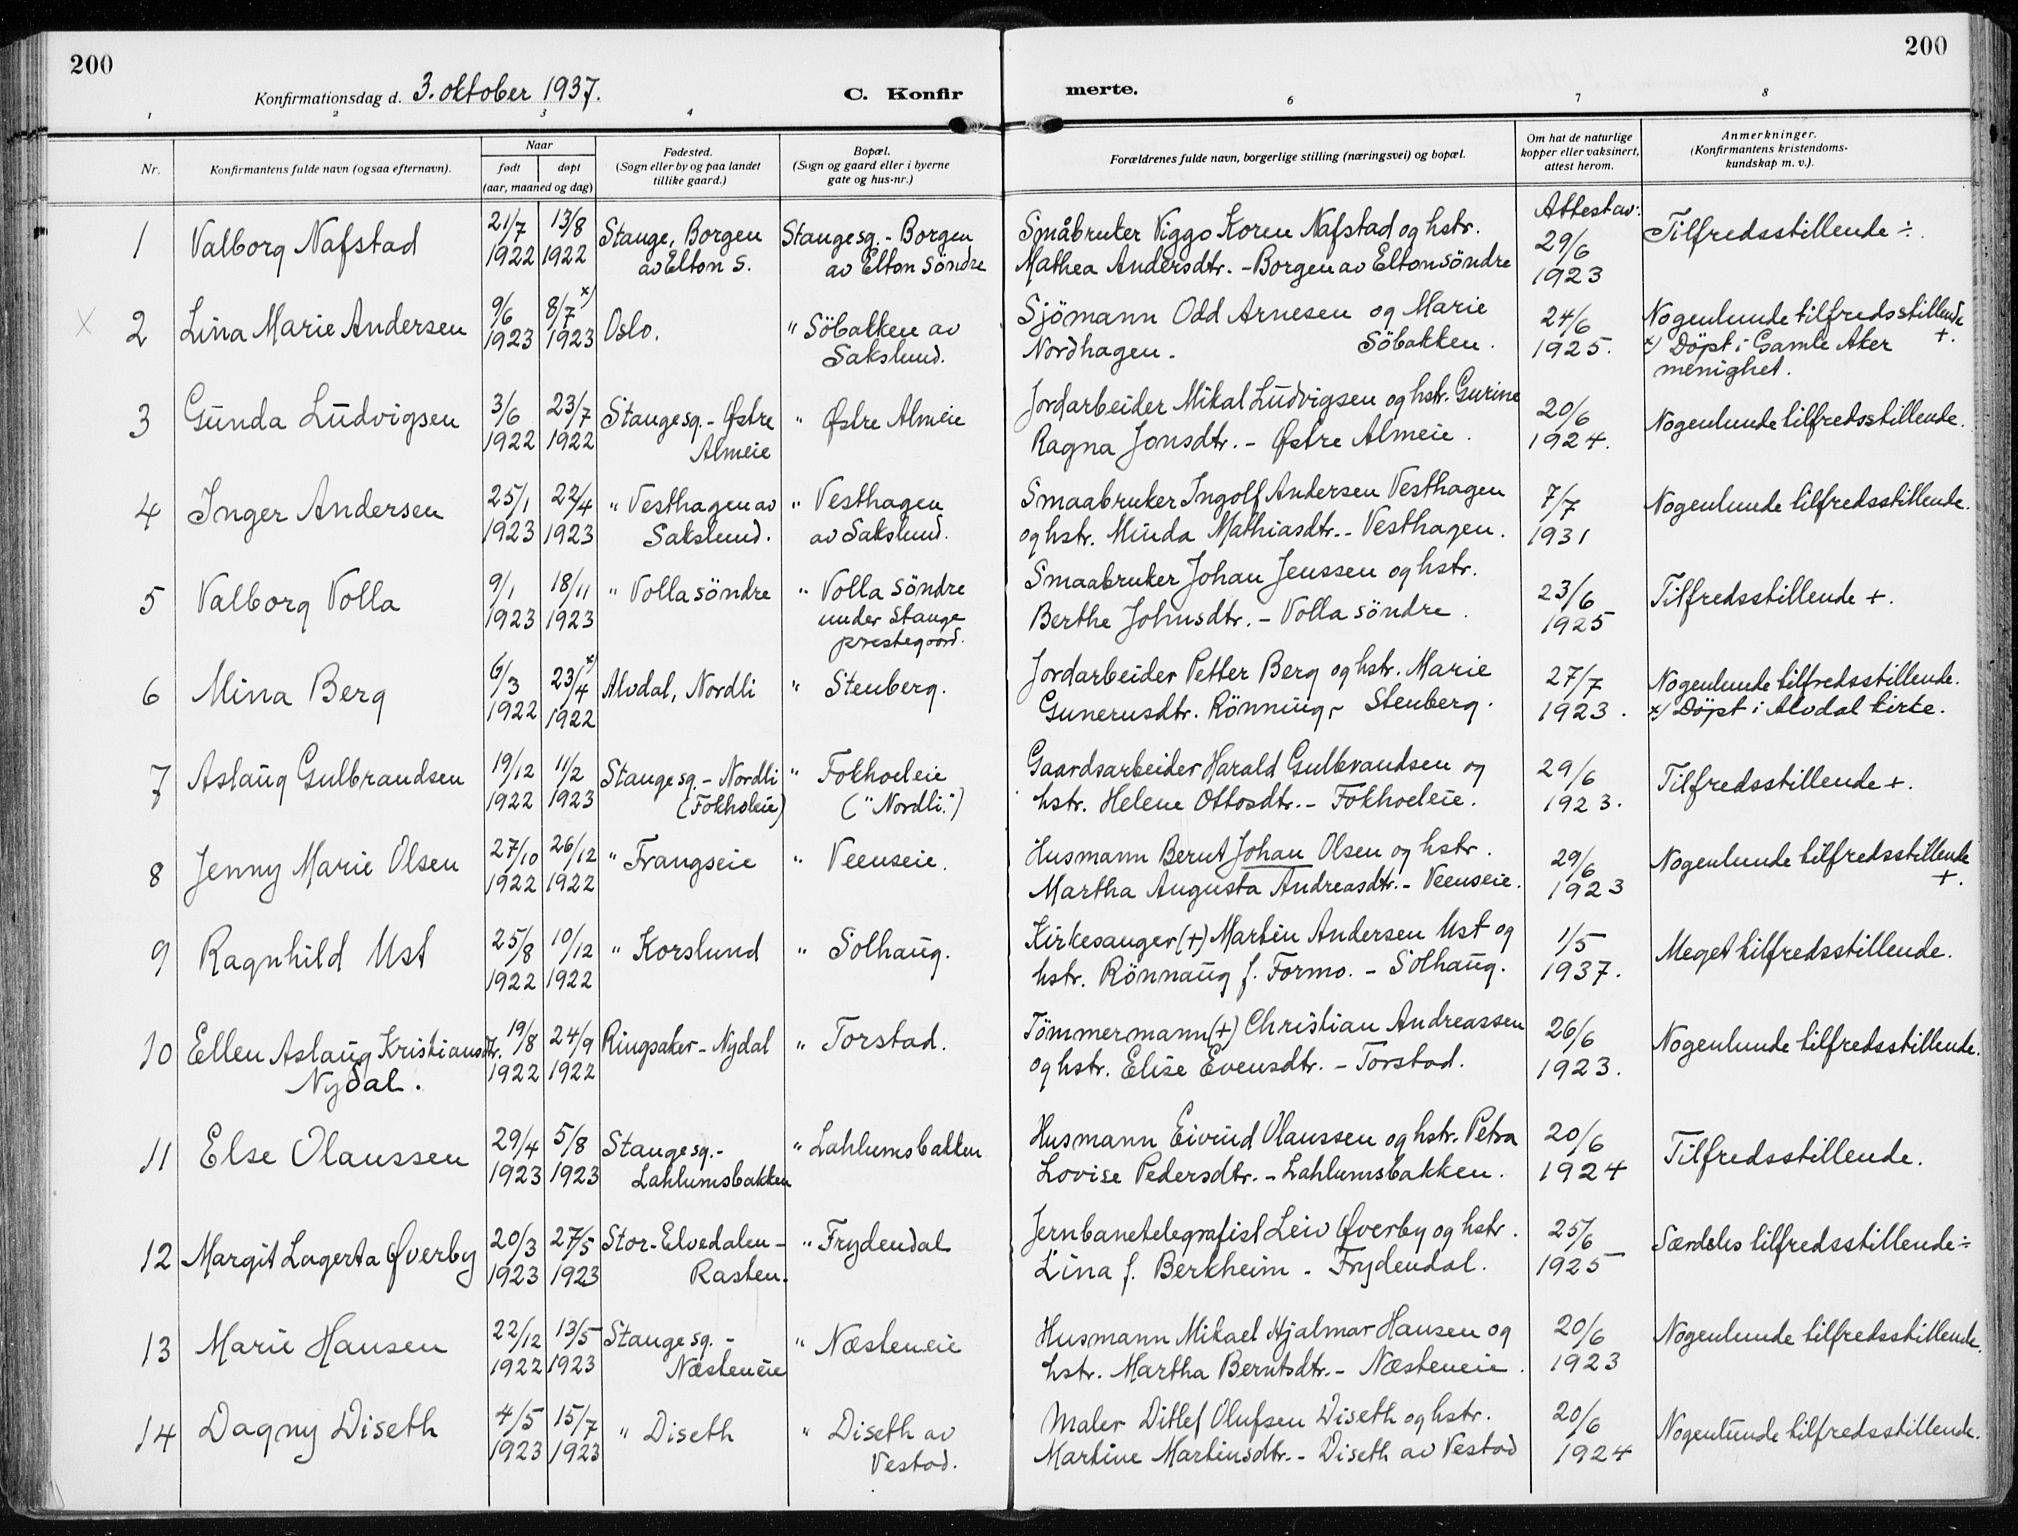 200
200
Konfirmationsdag d. 3. oktober 1937.
C. Konfir
merte.
1 2 3 4 6 7 8
Nr.
Konfirmantens fulde navn (ogsaa efternavn).
Naar
født
døpt
(aar, maaned og dag)
Fødested.
(Sogn eller by og paa landet
tillike gaard.)
Bopæl.
(Sogn og gaard eller i byerne
gate og hus-nr.)
Forældrenes fulde navn, borgerlige stilling (næringsvei) og bopæl.
Om hat de naturlige
kopper eller vaksinert,
attest herom.
Anmerkninger.
(Konfirmantens kristendoms-
kundskap m. v.).
1 Valborg Nafstad
21/7 1922
13/8 1922
Stange, Borgen
av Elton S.
Stange sg. - Borgen
av Elton Söndre
Småbruker Viggo Koren Nafstad og hstr.
Mathea Andersdtr. - Borgen av Elton söndre
Attest av:
29/6
1923
Tilfredsstillende ÷.
X 2 Lina Marie Andersen
9/6 1923
8/7 x) 1923
Oslo.
" Söbakken av
Sakslund.
Sjömann Odd Arnesen og Marie
Nordhagen. Söbakken.
24/6
1925.
Nogenlunde tilfredsstillende
+.
x) Döpt i Gamle Aker
menighet.
3 Gunda Ludvigsen
3/6 1922
23/7 1922
Stange sg. - Østre
Almeie
" Østre Almeie
Jordarbeider Mikal Ludvigsen og hstr. Gurine
Ragna Jonsdtr. - Østre Almeie.
20/6
1924.
Nogenlunde tilfredsstillende.
4 Inger Andersen
25/1 1923
22/4 1923
" Vesthagen av
Sakslund.
" Vesthagen
av Sakslund.
Smaabruker Ingolf Andersen Vesthagen
og hstr. Minda Mathiasdtr. - Vesthagen.
7/7
1931
Nogenlunde tilfredsstillende.
5 Valborg Volla
9/1 1923
18/11 1923
" Volla söndre
" Volla söndre
under Stange
prestegaard.
Smaabruker Johan Jenssen og hstr.
Berthe Johnsdtr. - Volla söndre.
23/6
1925
Tilfredsstillende +.
6 Mina Berg
6/3 1922
23/4 x 1922
Alvdal, Nordli
" Stenberg.
Jordarbeider Petter Berg og hstr. Marie
Gunerusdtr. Rönning, - Stenberg.
27/7
1923.
Nogenlunde tilfredsstillende.
x) Döpt i Alvdal kirke.
7 Aslaug Gulbrandsen
19/12 1922
11/2 1923
Stange sg. - Nordli
(Fokholeie)
" Fokhoeleie
("Nordli.")
Gaardsarbeider Harald Gulbrandsen og
hstr. Helene Ottosdtr. - Fokhoeleie.
29/6
1923.
Tilfredsstillende +.
8 Jenny Marie Olsen
27/10 1922
26/12 1922
" Frangseie
" Veenseie.
Husmann Bernt Johan Olsen og hstr.
Martha Augusta Andreasdtr. - Veenseie.
29/6
1923
Nogenlunde tilfredsstillende
+.
9 Ragnhild Ust
25/8 1922
10/12 1922
" Korslund
" Solhaug.
Kirkesanger (+) Martin Andersen Ust og
hstr. Rönnaug f. Formo. - Solhaug.
1/5
1937.
Meget tilfredsstillende.
10 Ellen Aslaug Kristiansdtr.
Nydal.
19/8 1922
24/9 1922
Ringsaker - Nydal
" Torstad.
Tömmermann (+) Christian Andreassen
og hstr. Elise Evensdtr. - Torstad.
26/6
1923.
Nogenlunde tilfredsstillende.
11 Else Olaussen
29/4 1923
5/8 1923
Stange sg. -
Lahlumsbakken
" Lahlumsbakken
Husmann Eivind Olaussen og hstr. Petra
Lovise Pedersdtr. - Lahlumsbakken.
20/6
1924
Tilfredsstillende.
12 Margit Lagerta Øverby
20/3 1923
27/5 1923
Stor-Elvedalen -
Rasten.
" Frydendal
Jernbanetelegrafist Leiv Øverby og hstr.
Lina f. Berkheim - Frydendal.
25/6
1925
Særdeles tilfredsstillende ÷
13 Marie Hansen
22/12 1922
13/5 1923
Stange sg. -
Næsteneie
" Næsteneie
Husmann Mikael Hjalmar Hansen og
hstr. Martha Berntsdtr. - Næsteneie.
20/6
1923
Nogenlunde tilfredsstillende.
14 Dagny Diseth
4/5 1923
15/7 1923
" Diseth
" Diseth av
Vestad.
Maler Ditlef Olufsen Diseth og hstr.
Martine Martinsdtr. - Diseth av Vestad
20/6
1924
Nogenlunde tilfredsstillende.